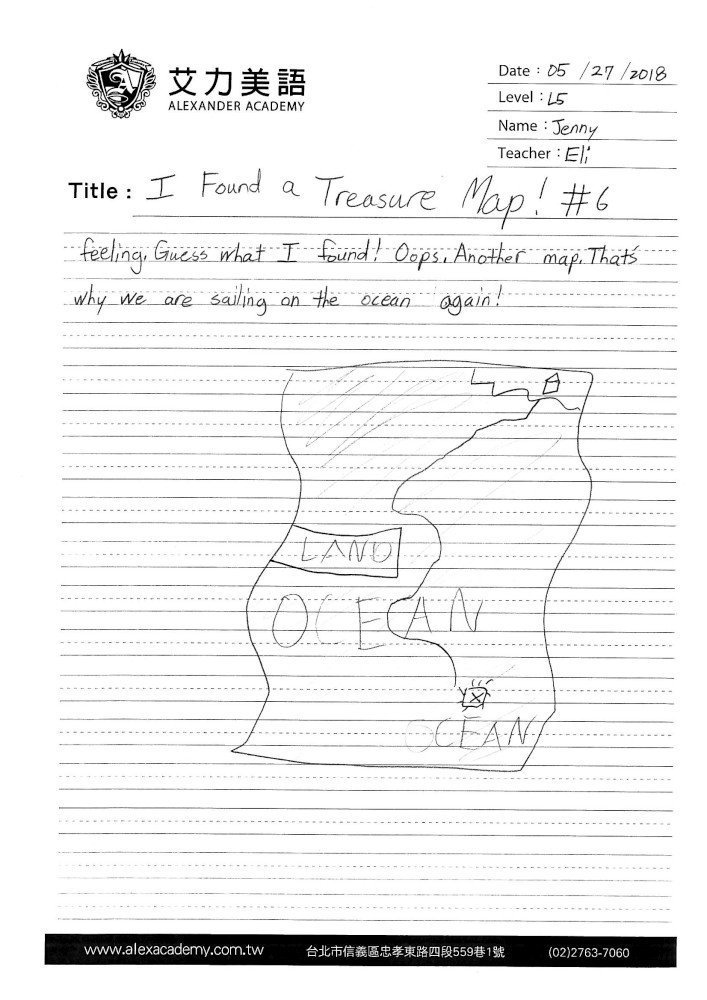 艾力美語
ALEXANDER ACADEMY
Date : 05 / 27 / 2018
Level : L5
Name : Jenny
Teacher : Eli
Title : I Found a Treasure Map! #6
feeling. Guess what I found! Oops. Another map. That's
why we are sailing on the ocean again!
LAND
OCEAN
X
OCEAN
www.alexacademy.com.tw 台北市信義區忠孝東路四段559巷1號 (02)2763-7060